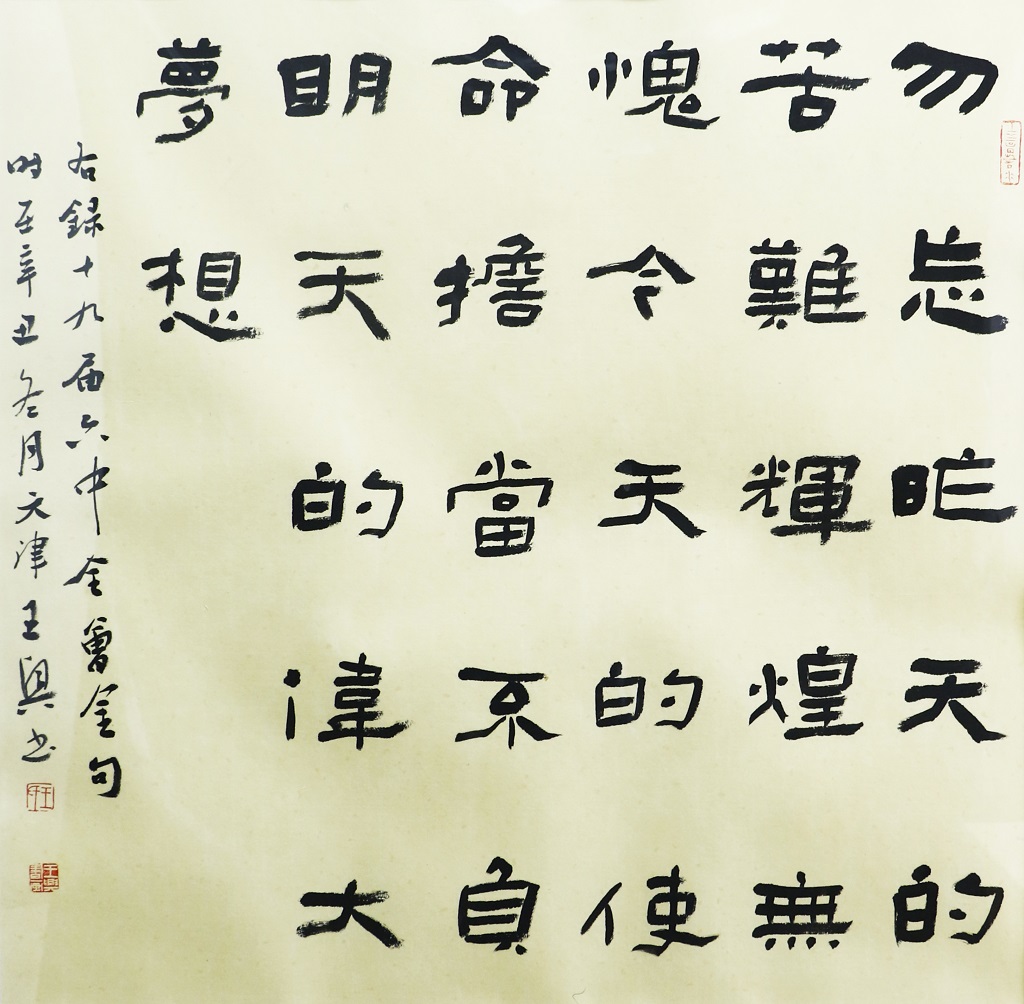 勿忘昨天的
苦難輝煌無
愧今天的使
命擔當不負
明天的偉大
夢想
右録十九届六中全會金句
时在辛丑冬月天津王興书